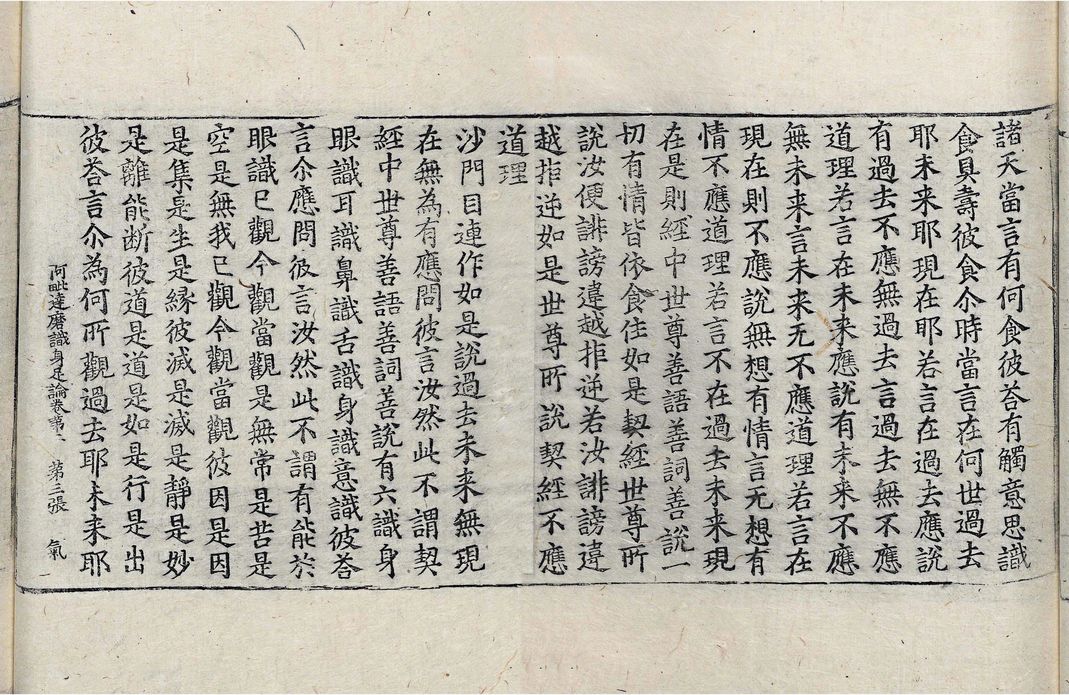 諸天當言有何食彼荅有觸意思識
食具壽彼食尒時當言在何世過去
耶未来耶現在耶若言在過去應說
有過去不應無過去言過去無不應
道理若言在未来應說有未来不應
無未来言未来无不應道理若言在
現在則不應說無想有情言无想有
情不應道理若言不在過去未来現
在是則經中世尊善語善詞善說一
切有情皆依食住如是契經世尊所
說汝便誹謗違越拒逆若汝誹謗違
越拒逆如是世尊所說契經不應
道理
沙門目連作如是說過去未来無現
在無為有應問彼言汝然此不謂契
經中世尊善語善詞善說有六識身
眼識耳識鼻識舌識身識意識彼荅
言尒應問彼言汝然此不謂有能於
眼識已觀今觀當觀是無常是苦是
空是無我已觀今觀當觀彼因是因
是集是生是緣彼滅是滅是靜是妙
是離能断彼道是道是如是行是出
彼荅言尒為何所觀過去耶未来耶
阿毗達磨識身足論卷第一 第三張 氣